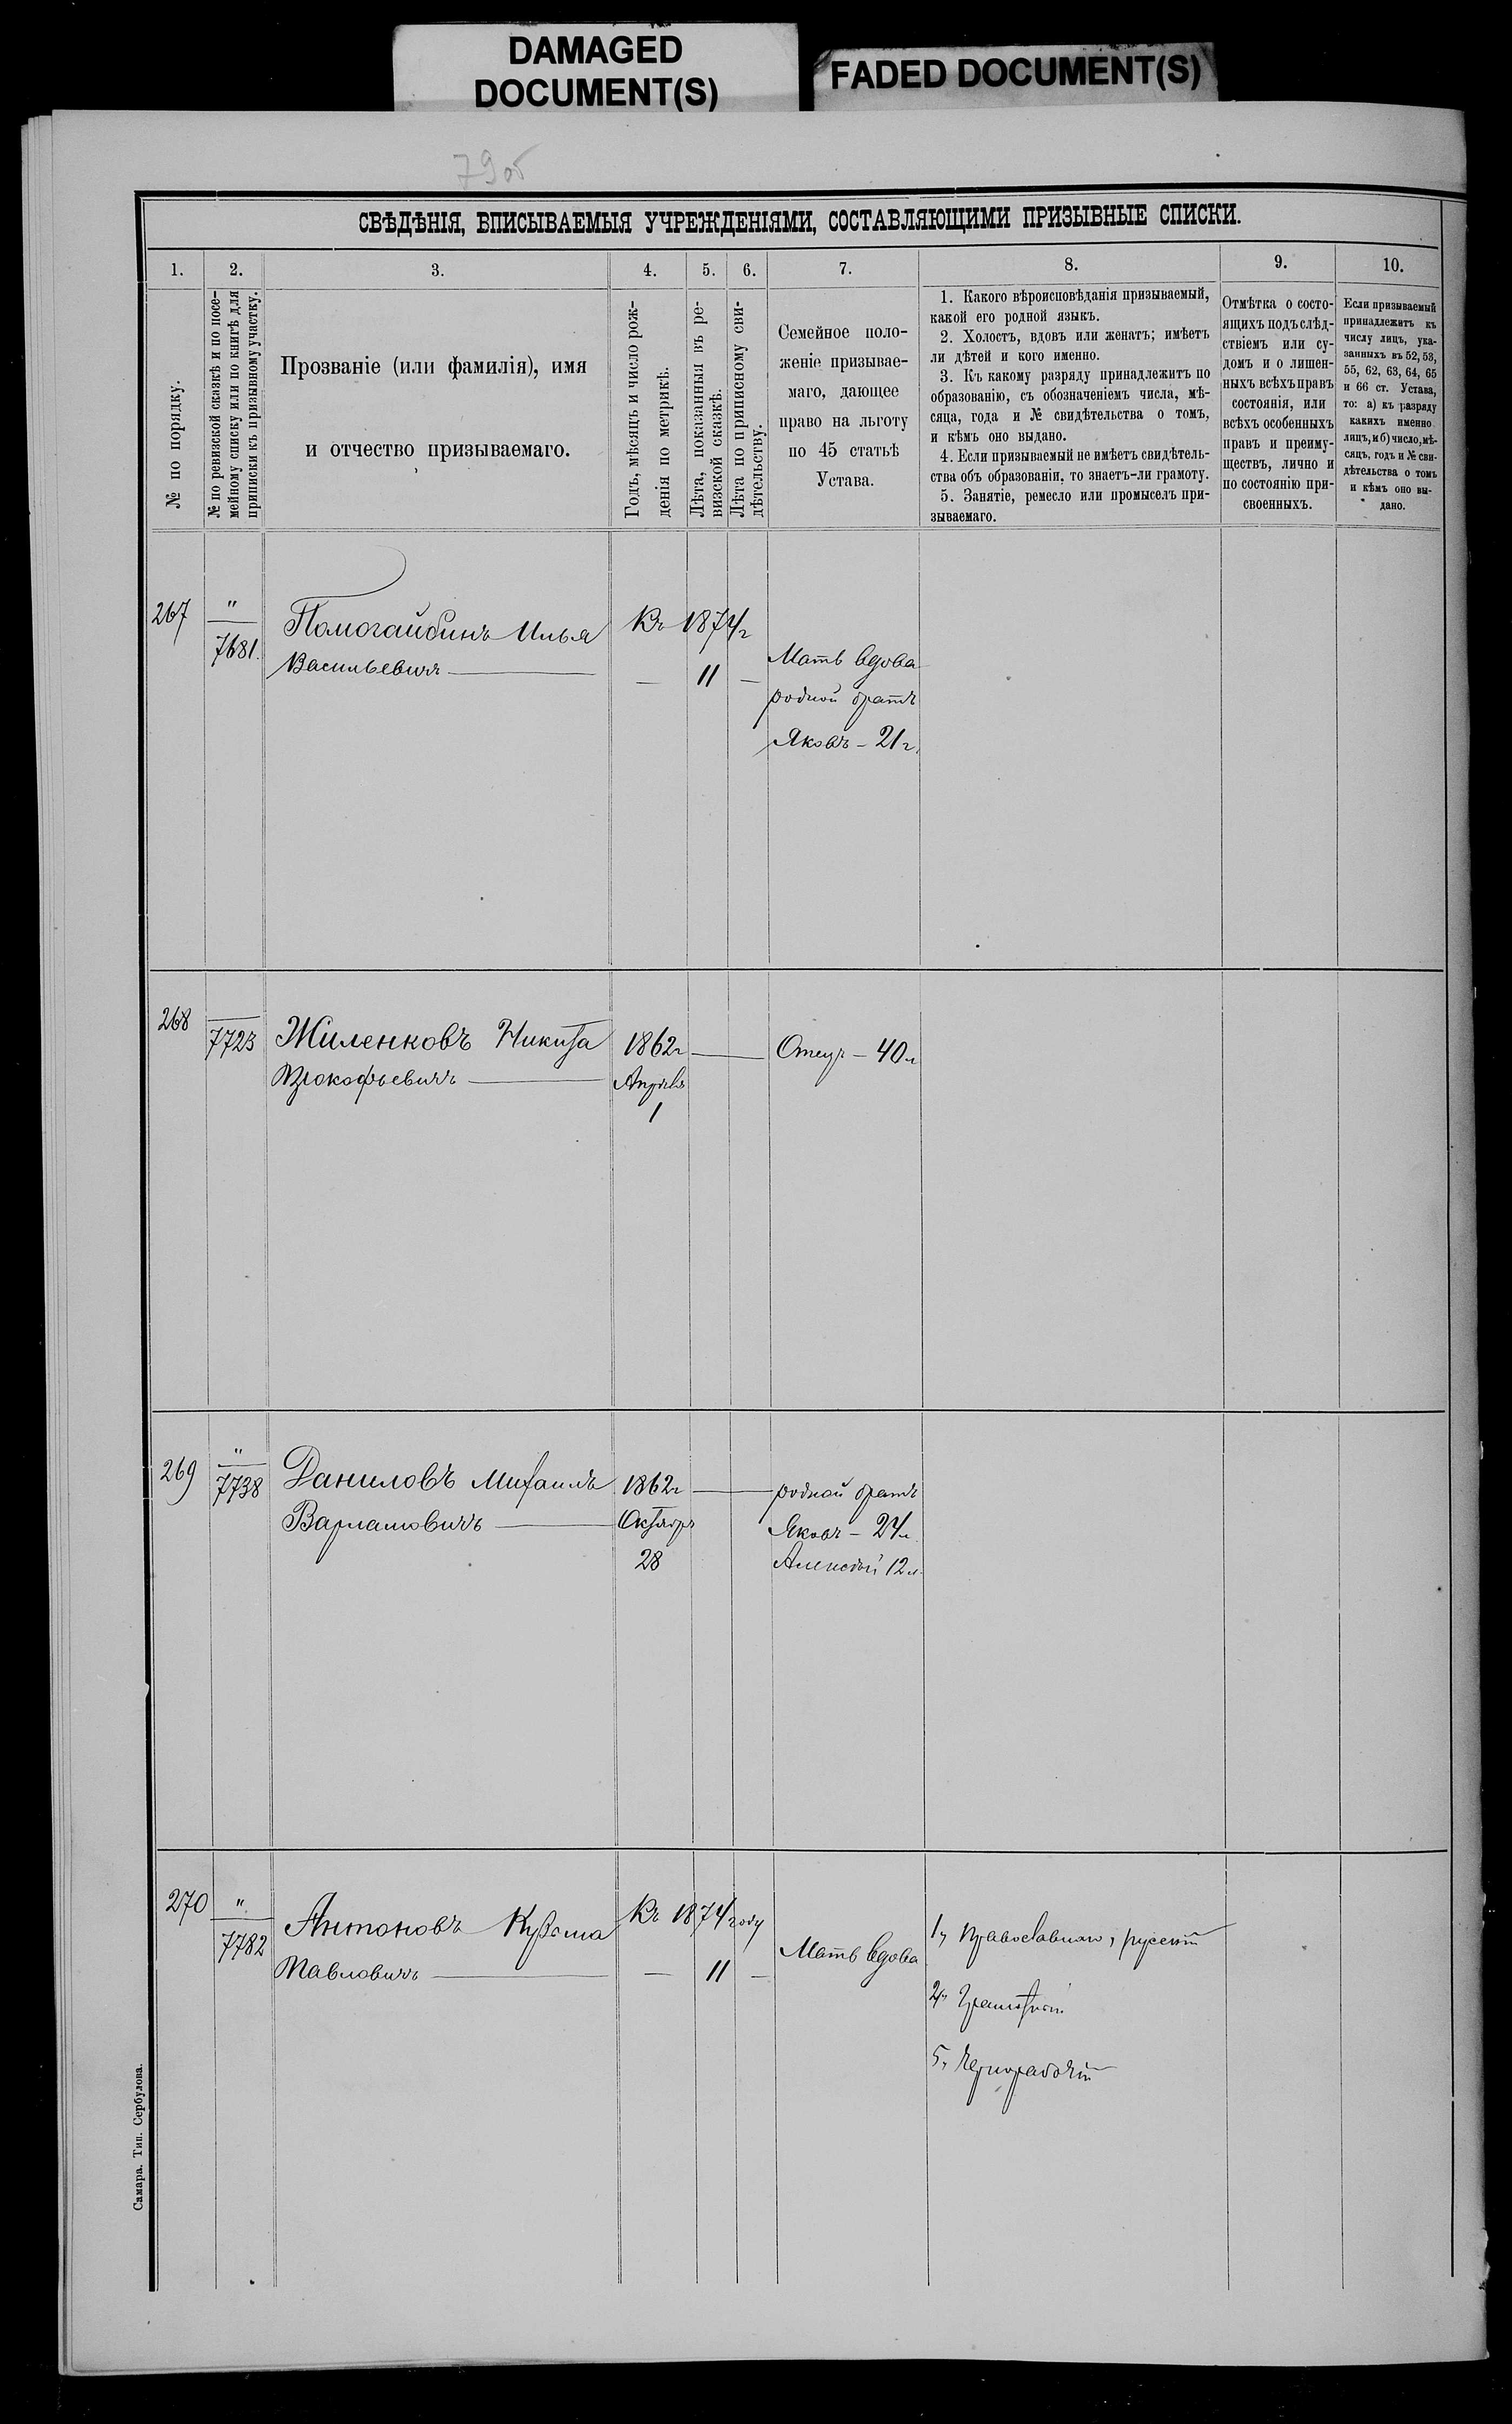 DAMAGED
DOCUMENT(S)
FADED DOCUMENT(S)
79об
СВѢДѢНІЯ, ВПИСЫВАЕМЫЯ УЧРЕЖДЕНІЯМИ, СОСТАВЛЯЮЩИМИ ПРИЗЫВНЫЕ СПИСКИ.
1. 2. 3. 4. 5. 6. 7. 8. 9. 10.
№ по порядку.
№ по ревизской сказкѣ и по посе-
мейному списку или по книгѣ для
приписки къ призывному участку.
Прозваніе (или фамилія), имя
и отчество призываемаго.
Годъ, мѣсяцъ и число рож-
денія по метрикѣ.
Лѣта, показанныя въ ре-
визской сказкѣ.
Лѣта по приписному сви-
дѣтельству.
Семейное поло-
женіе призывае-
маго, дающее
право на льготу
по 45 статьѣ
Устава.
1. Какого вѣроисповѣданія призываемый,
какой его родной языкъ.
2. Холостъ, вдовъ или женатъ; имѣетъ
ли дѣтей и кого именно.
3. Къ какому разряду принадлежитъ по
образованію, съ обозначеніемъ числа, мѣ-
сяца, года и № свидѣтельства о томъ,
и кѣмъ оно выдано.
4. Если призываемый не имѣетъ свидѣтель-
ства объ образованіи, то знаетъ-ли грамоту.
5. Занятіе, ремесло или промыселъ при-
зываемаго.
Отмѣтка о состо-
ящихъ подъ слѣд-
ствіемъ или су-
домъ и о лишен-
ныхъ всѣхъ правъ
состоянія, или
всѣхъ особенныхъ
правъ и преиму-
ществъ, лично и
по состоянію при-
своенныхъ.
Если призываемый
принадлежитъ къ
числу лицъ, ука-
занныхъ въ 52, 53,
55, 62, 63, 64, 65
и 66 ст. Устава,
то: а) къ разряду
какихъ именно
лицъ, и б) число, мѣ-
сяцъ, годъ и № сви-
дѣтельства о томъ
и кѣмъ оно вы-
дано.
267 " Помогайбинъ Илья Къ 1874г
7681. Васильевичъ — — 11 — Мать вдова
родной братъ
Яковъ – 21г.
268 7723 Жиленковъ Никита 1862г — Отецъ – 40л
Прокофьевичъ — Апрѣля
1
269 " Даниловъ Михаилъ 1862г — родной братъ
7738 Варламовичъ — Октября Яковъ – 24л
28 Алексѣй 12л.
270 " Антоновъ Кузьма Къ 1874году 1, Православнаго, русскій
7782 Павловичъ — — 11 — Мать вдова
4, Грамотный
5, Чернорабочій
Самара. Тип. Сербулова.